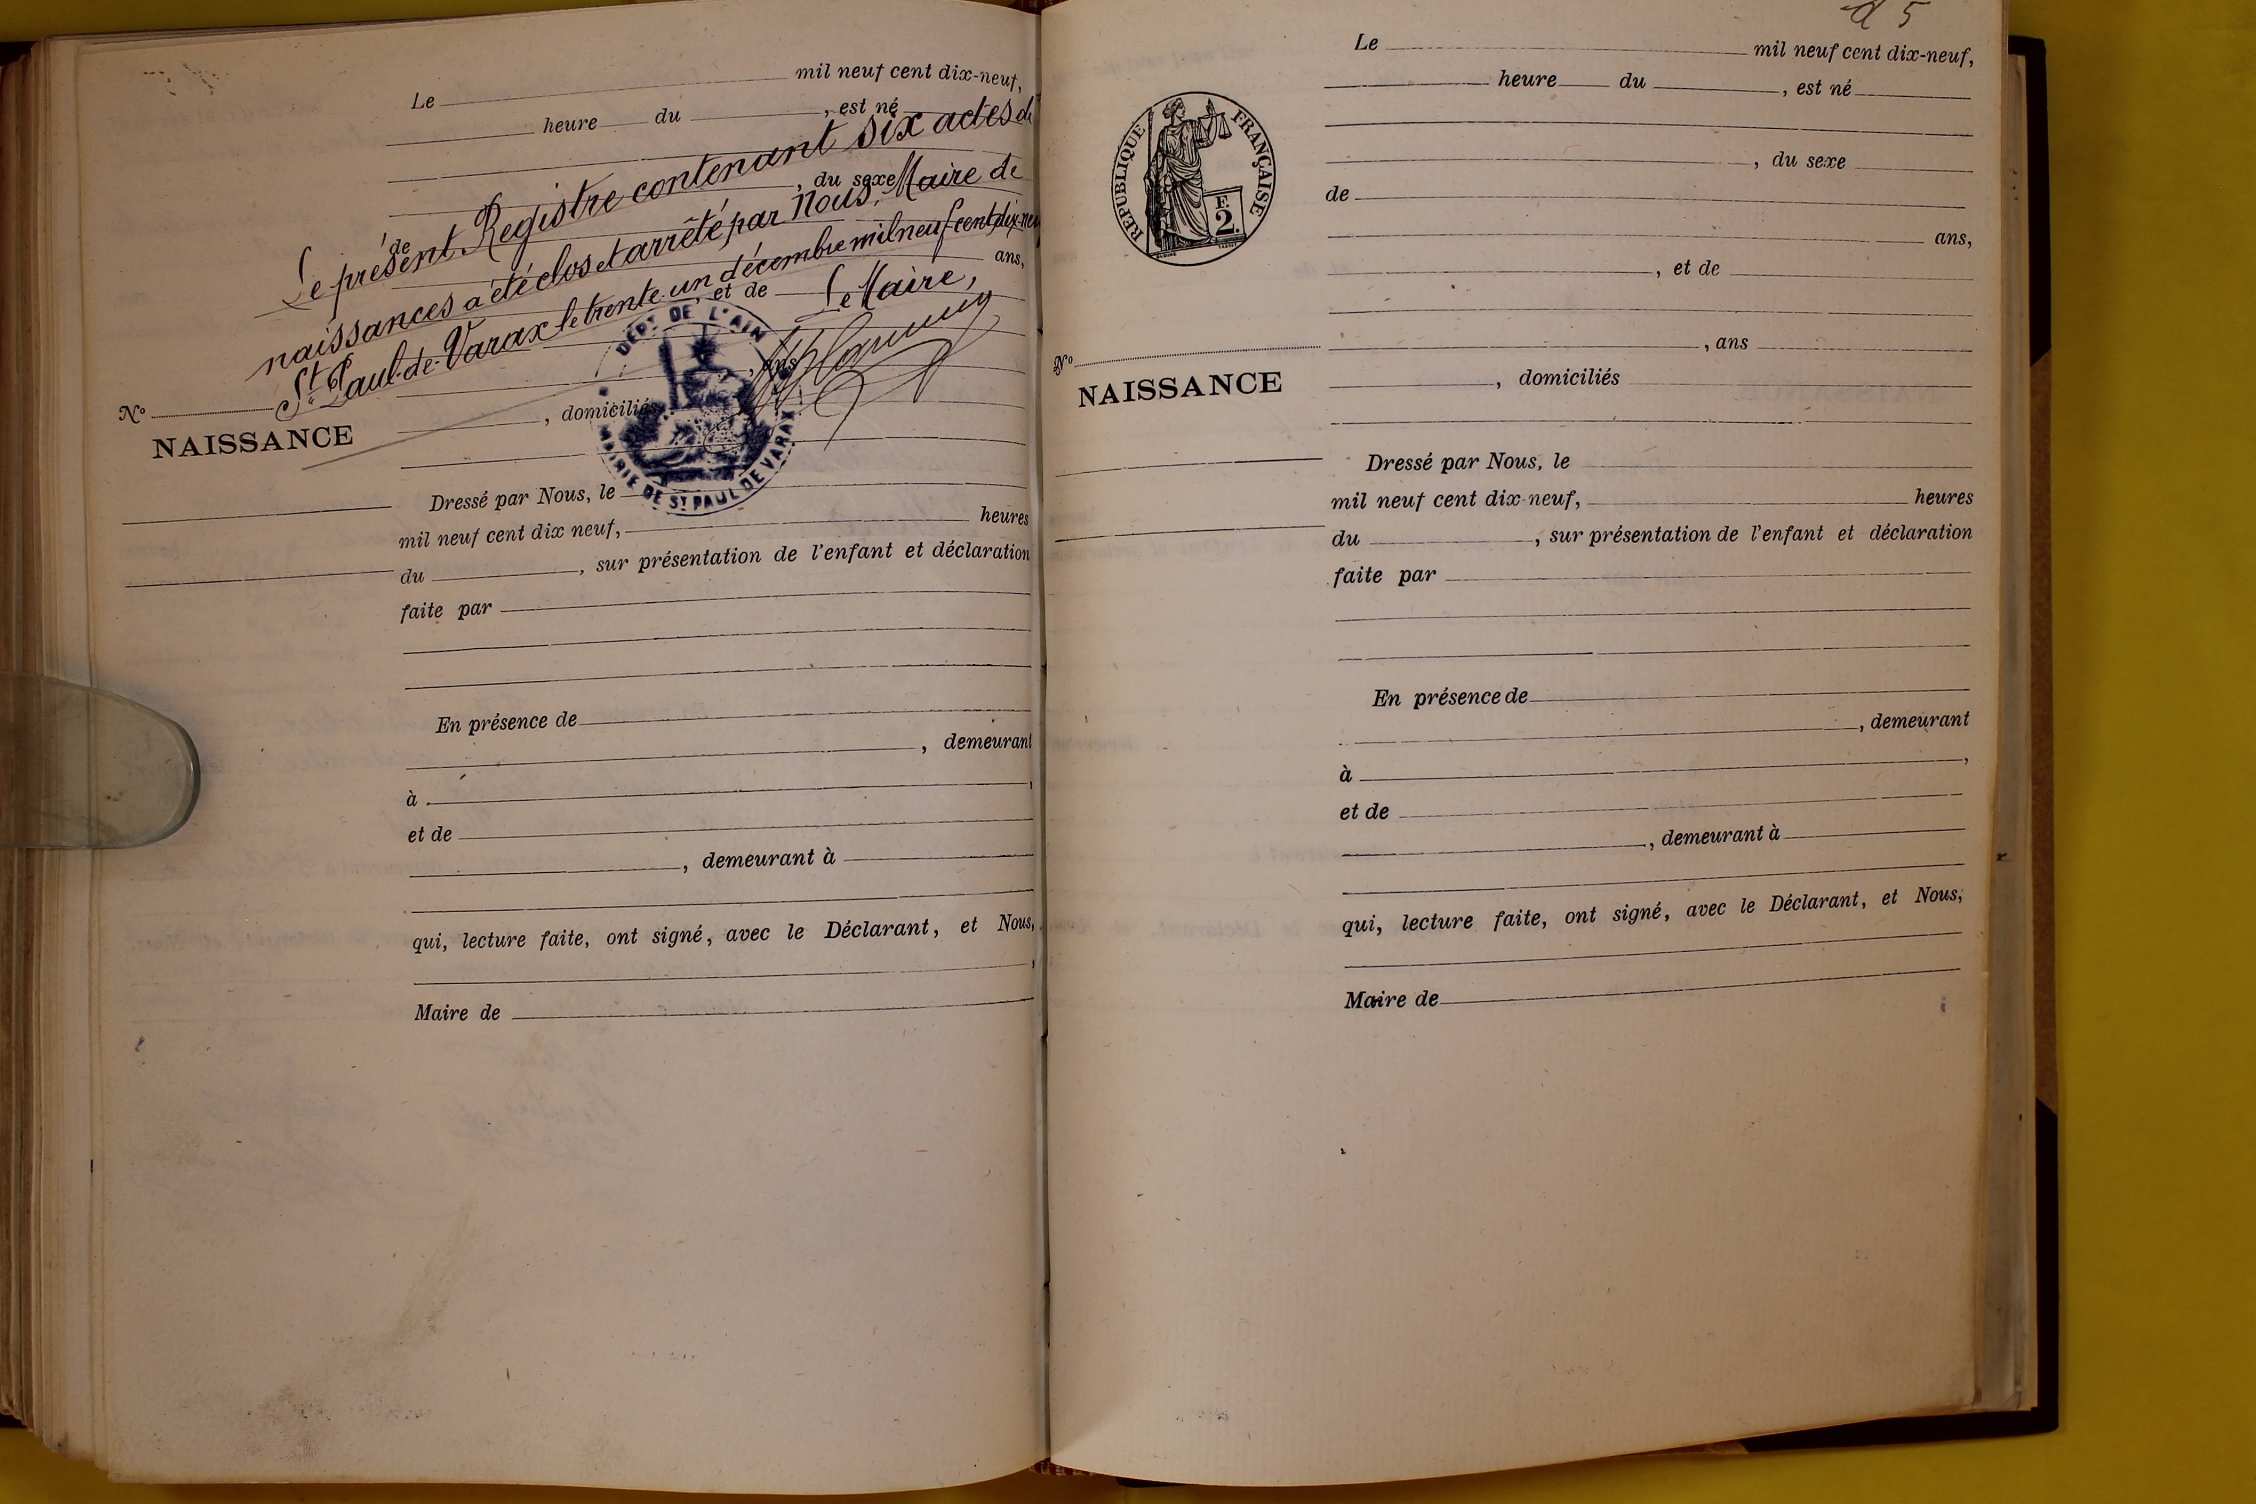 Le mil neuf cent dix-neuf,
heure du , est né
, du sexe
de
ans,
, et de
, ans
Le présent Registre contenant six actes de
naissances a été clos et arrêté par Nous, Maire de
St Paul-de-Varax le trente-un décembre mil neuf cent dix-neuf
Le Maire,
DÉPT DE L'AIN
MAIRIE DE ST PAUL DE VARAX
No
NAISSANCE
, domiciliés
Dressé par Nous, le
mil neuf cent dix neuf, heures
du , sur présentation de l'enfant et déclaration
faite par
En présence de
, demeurant
à ,
et de
, demeurant à
qui, lecture faite, ont signé, avec le Déclarant, et Nous,
,
Maire de
d 5
Le mil neuf cent dix-neuf,
heure du , est né
, du sexe
de
ans,
, et de
, ans
RÉPUBLIQUE FRANÇAISE
F.
2.
No
NAISSANCE
, domiciliés
Dressé par Nous, le
mil neuf cent dix-neuf, heures
du , sur présentation de l'enfant et déclaration
faite par
En présence de
, demeurant
à ,
et de
, demeurant à
qui, lecture faite, ont signé, avec le Déclarant, et Nous,
Maire de